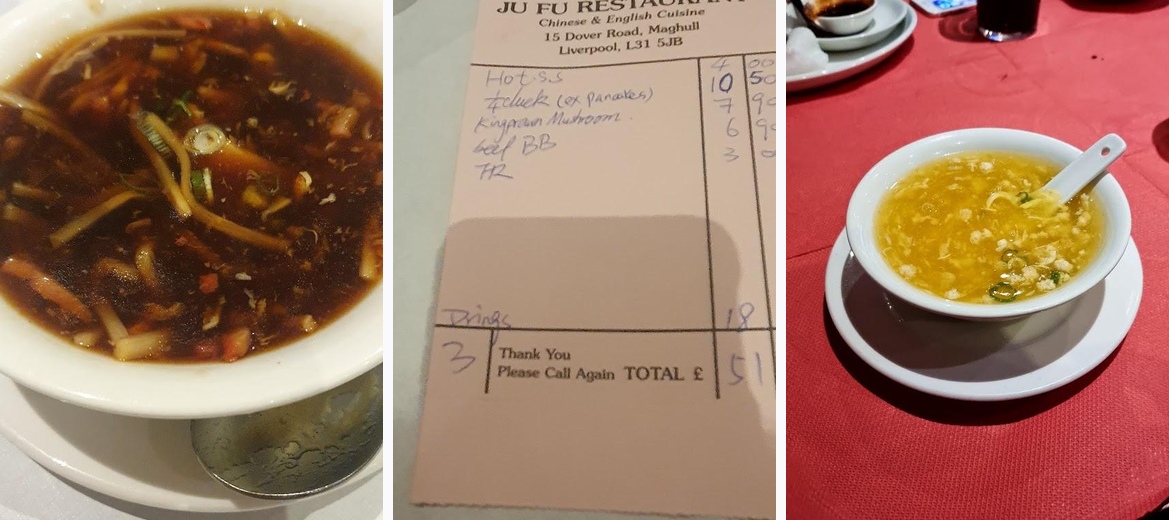 JU FU RESTAURANT
Chinese & English Cuisine
15 Dover Road, Maghull
Liverpool, L31 5JB
Hot-S.S 4 00
¼ duck (ex pancakes) 10 50
Kingprawn Mushroom. 7 9
beef BB 6 9
3 0
18
3 Thank You
Please Call Again TOTAL £ 51